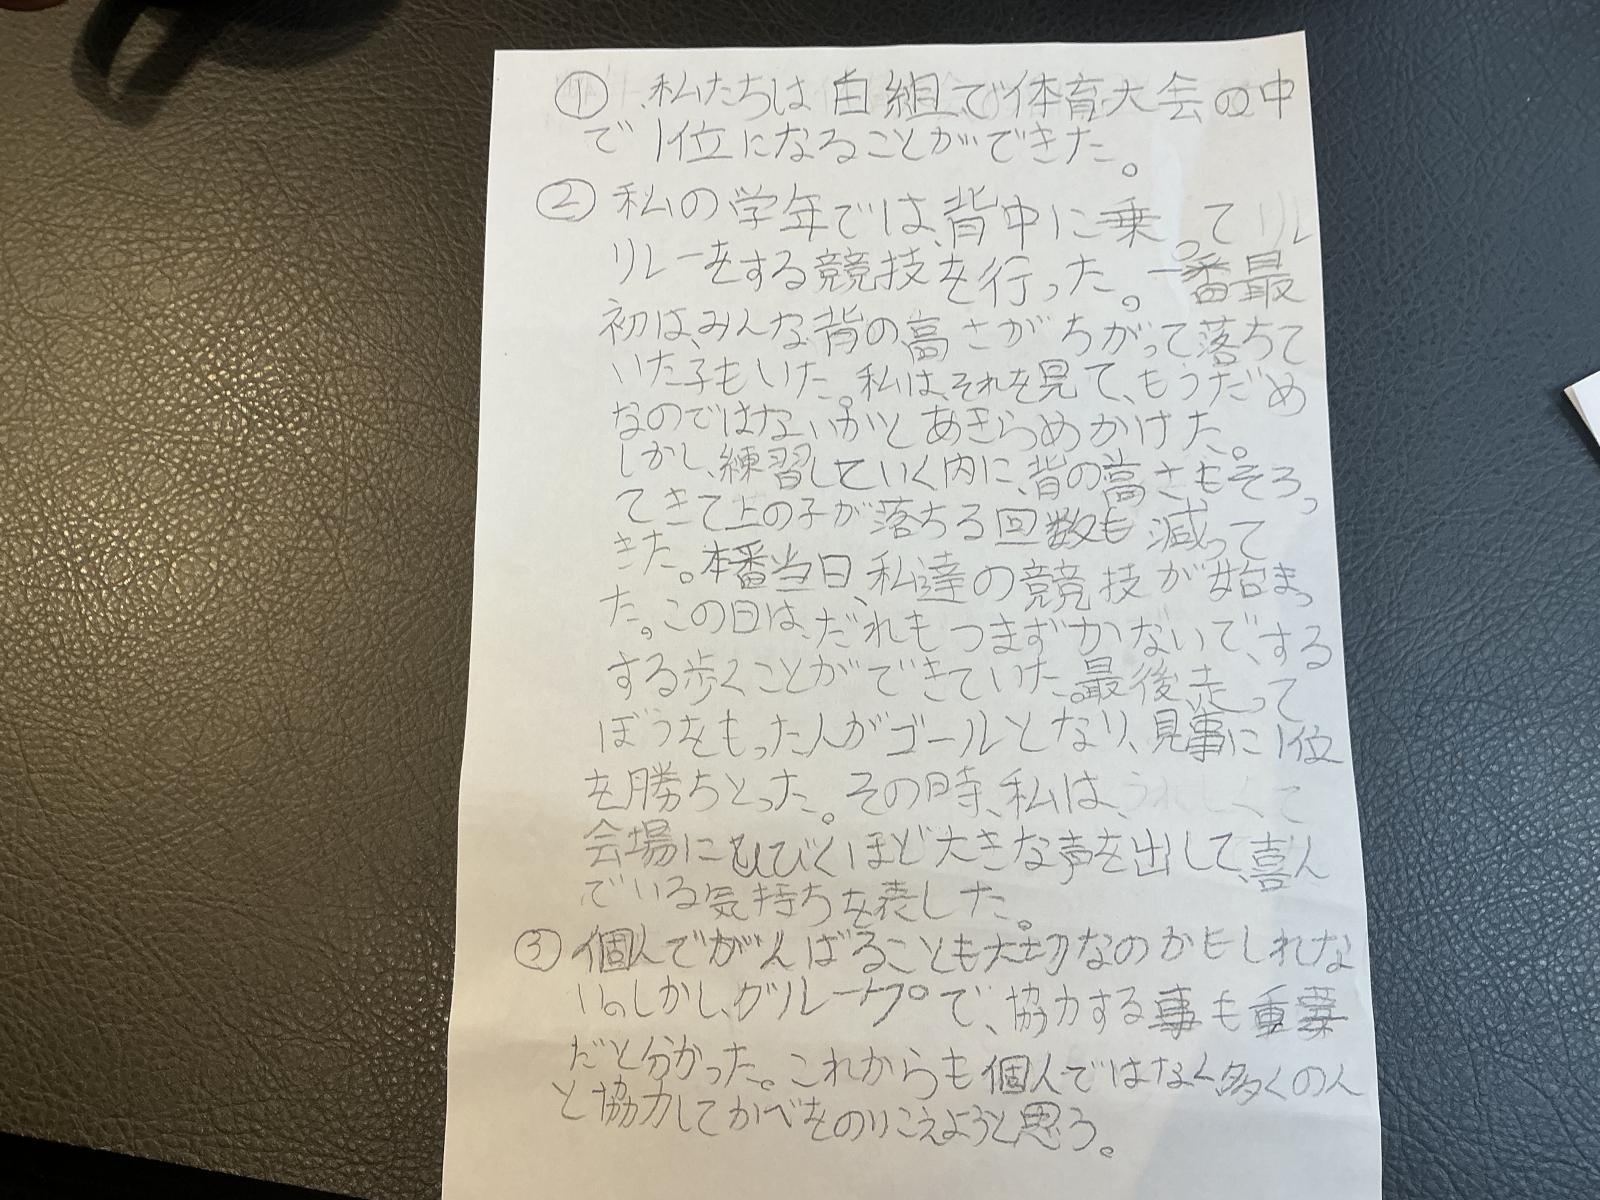 ① 私たちは白組で体育大会の中
で1位になることができた。
② 私の学年では、背中に乗って
リレーをする競技を行った。一番最
初は、みんな背の高さがちがって落ちて
いた子もいた。私は、それを見て、もうだめ
なのではないかとあきらめかけた。
しかし、練習していく内に、背の高さもそろっ
てきて上の子が落ちる回数も減って
きた。本番当日、私達の競技が始まっ
た。この日は、だれもつまずかないで、する
する歩くことができていた。最後走って
ぼうをもった人がゴールとなり、見事に1位
を勝ちとった。その時、私は、うれしくて
会場にひびくほど大きな声を出して、喜ん
でいる気持ちを表した。
③ 個人でがんばることも大切なのかもしれな
い。しかし、グループで、協力する事も重要
だと分かった。これからも個人ではなく多くの人
と協力してかべをのりこえようと思う。